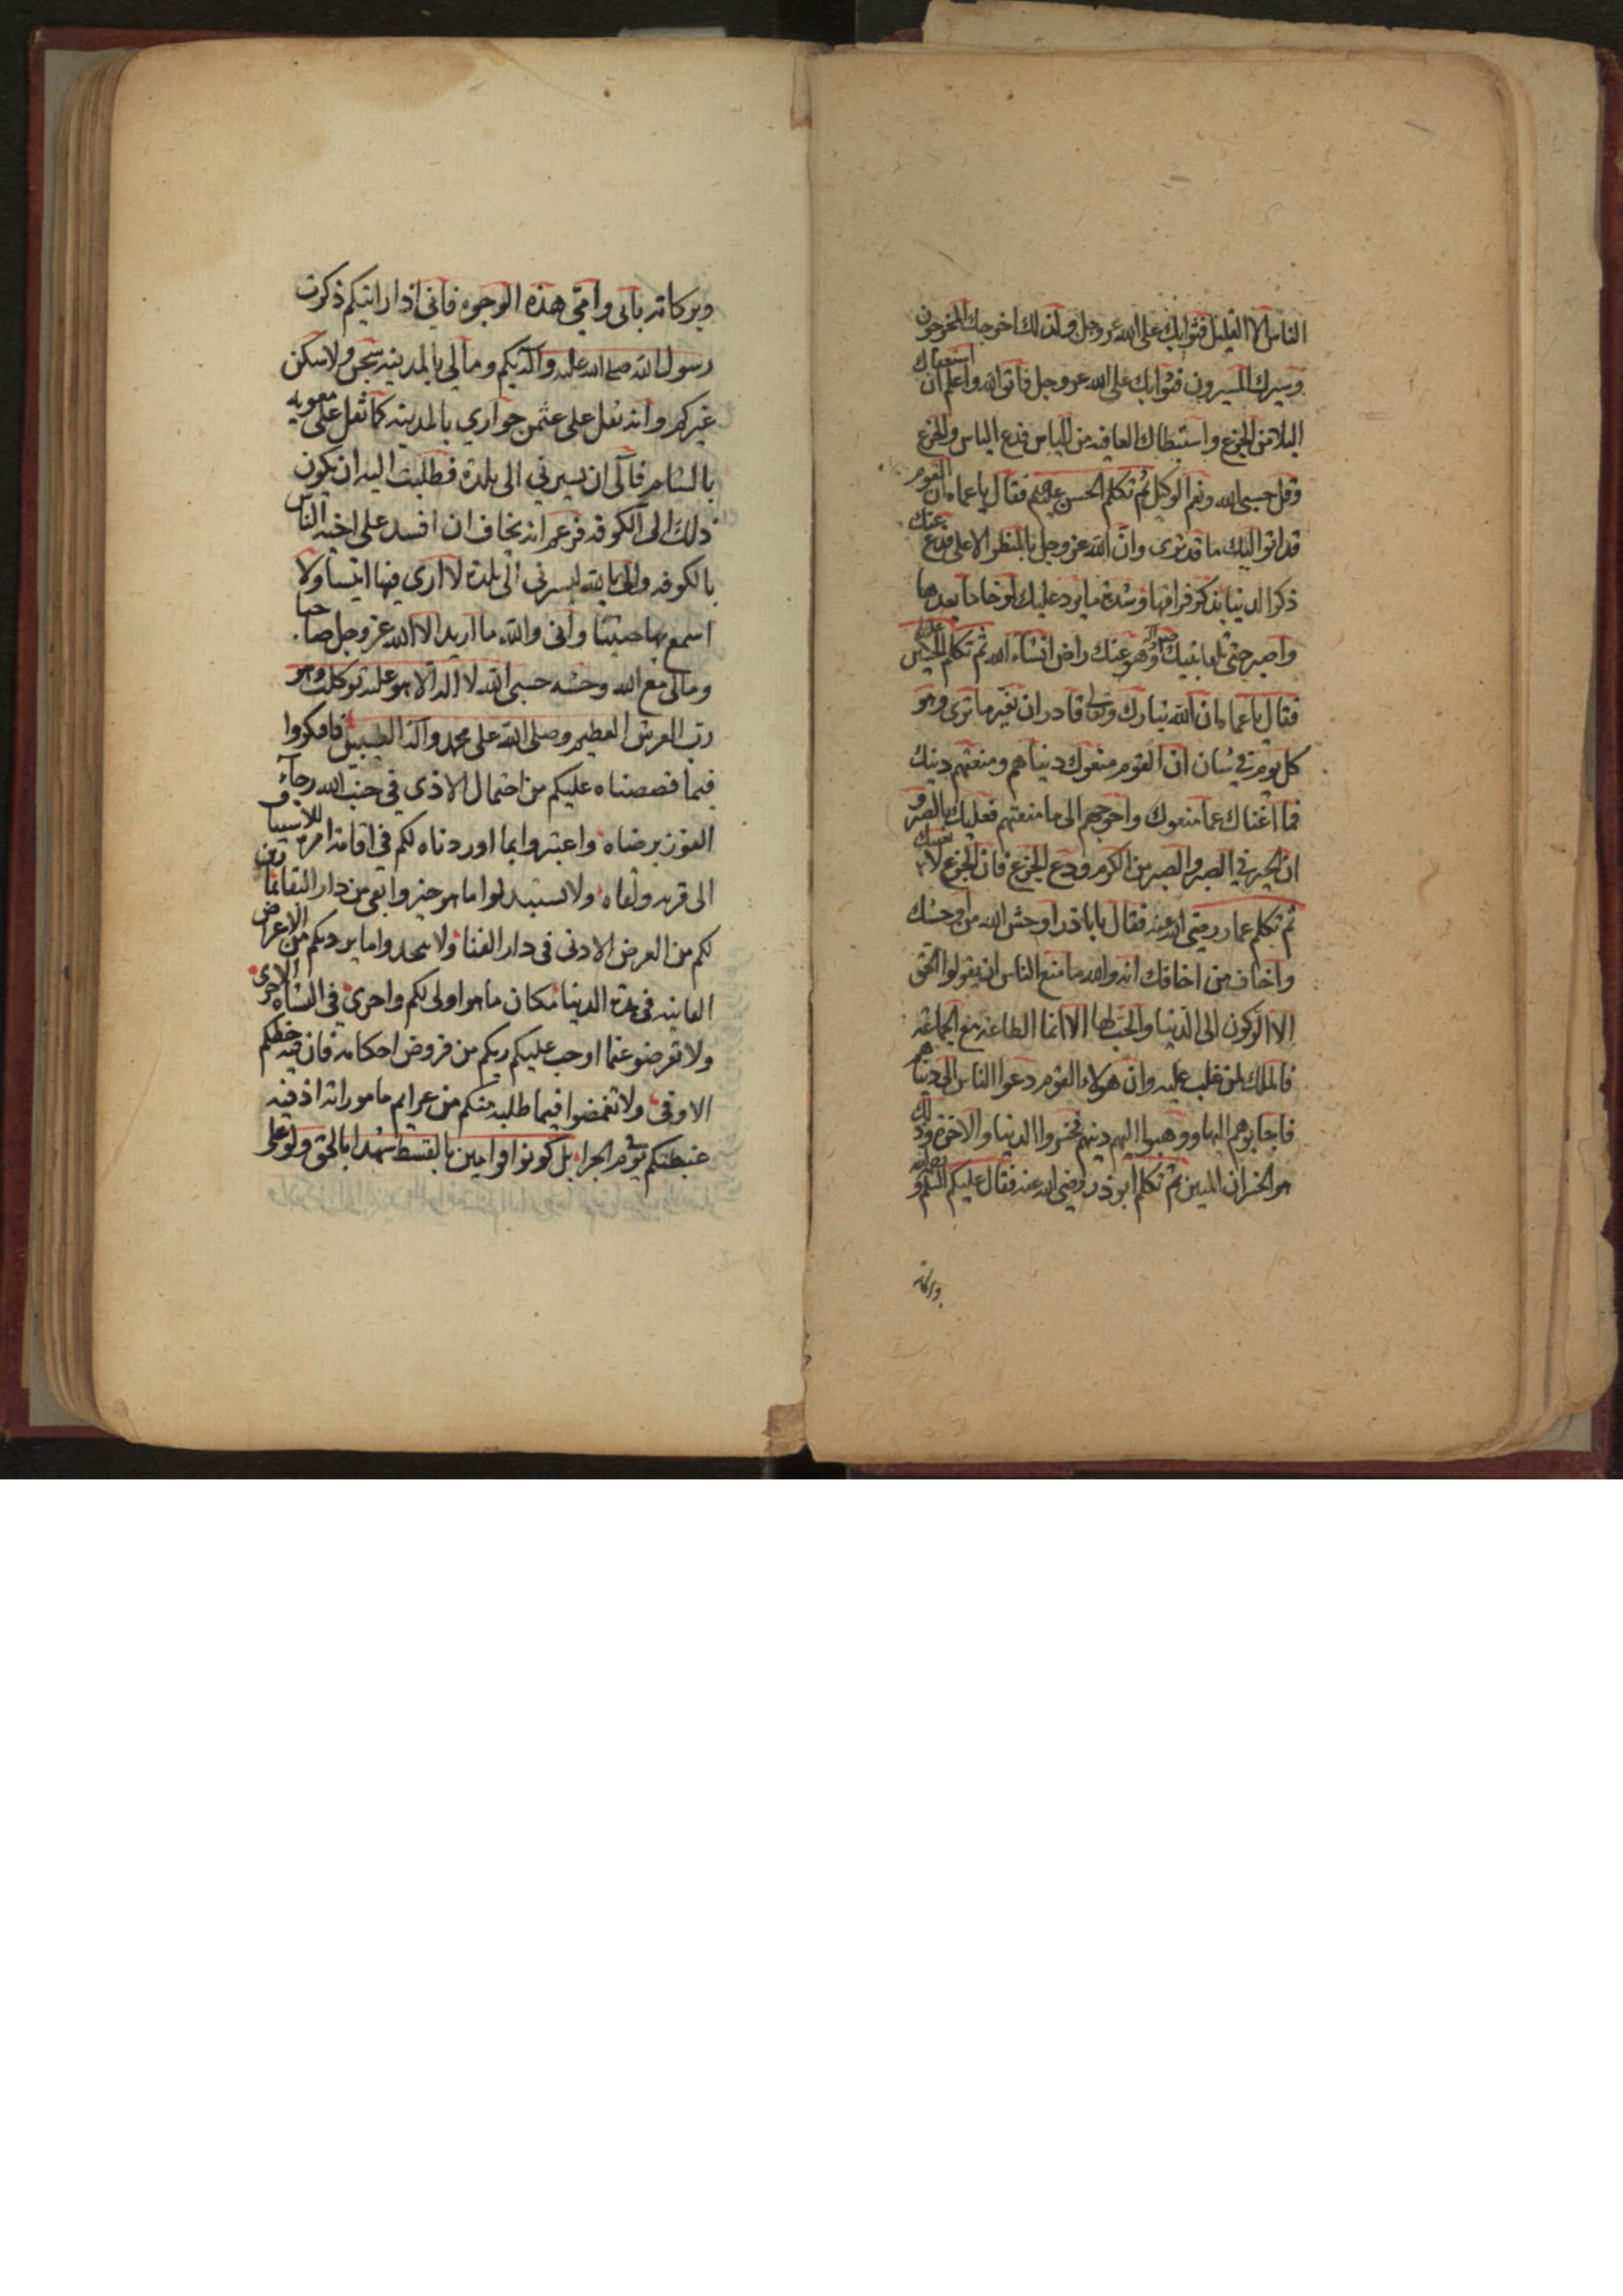 الناس الا القليل فثوابك على الله عز وجل ولذلك اخرجك المخرجون
وسيرك المسيرون فثوابك على الله عز وجل فاتق الله واعلم ان استعفاك
البلا من الجزع واستبطاك العافيه من الياس فدع الياس والجزع
وقل حسبي الله ونعم الوكيل ثم تكلم الحسن فقال يا عماه ان القوم
قد اتوا اليك ما قد ترى وان الله عز وجل بالمنظر الاعلى فدع عنك
ذكر الدنيا بذكر فراقها وشدة ما يرد عليك لرخا ما بعدها
واصبر حتى تلقا نبيك وهو عنك راض انشاء الله ثم تكلم الحسين
فقال يا عماه ان الله تبارك وتعالى قادر ان يغير ما ترى وهو
كل يوم في شان ان القوم منعوك دنياهم ومنعتهم دينك
فما اغناك عما منعوك واحوجهم الى ما منعتهم فعليك بالصبر و
ان الخير في الصبر والصبر من الكرم ودع الجزع فان الجزع لا
ثم تكلم عمار رضي الله عنه فقال يا باذر اوحش الله من اوحشك
واخاف من اخافك انه والله ما منع الناس ان يقولوا الحق
الا الركون الى الدنيا والحب لها الا انما الطاعة مع الجماعه
فالملك لمن غلب عليه وان هولاء القوم دعوا الناس الى دنياهم
فاجابوهم اليها ووهبوا اليهم دينهم فخسروا الدنيا والاخرة وذلك
هو الخسران المبين ثم تكلم ابو ذر رضي الله عنه فقال عليكم السلم و
وبركاته
وبركاته بابي وامي هذه الوجوه فاني اذا رايتكم ذكرت
رسول الله صلى الله عليه واله بكم ومالي بالمدينه شجن ولا سكن
غيركم وانه ثقل على عثمن جواري بالمدينه كما ثقل على معويه
بالشام فآلى ان يسيرني الى بلدة فطلبت اليه ان يكون
ذلك الى الكوفه فزعم انه يخاف ان افسد على اخيه الناس
بالكوفه والى بالله ليسرني الى بلدة لا ارى فيها انيسا ولا
اسمع بها حسيسا واني والله ما اريد الا الله عز وجل صاحبا
ومالي مع الله وحشه حسبي الله لا اله الا هو عليه توكلت وهو
رب العرش العظيم وصلى الله على محمد واله الطيبين فافكروا
فيما قصصناه عليكم من احتمال الاذى في جنب الله رجآء
الفوز برضاه واعتبروا بما اوردناه لكم في اقامة امره
الى قربه ولقاه ولا تستبدلوا ما هو خير وابقى من دار البقا
لكم من العرض الادنى في دار الفنا ولا من الاعراض
الفانيه في هذه الدنيا مكان ما هو اولى لكم واحرى في النشاه الاخرى
ولا تعرضوا عما اوجب عليكم ربكم من فروض احكامه فان فيه حظكم
الاوفى ولا تغمضوا فيما طلبه منكم من عزايم ماموراته اذ فيه
غبطتكم يوم الجزا بل كونوا قوامين بالقسط شهدا بالحق ولو على